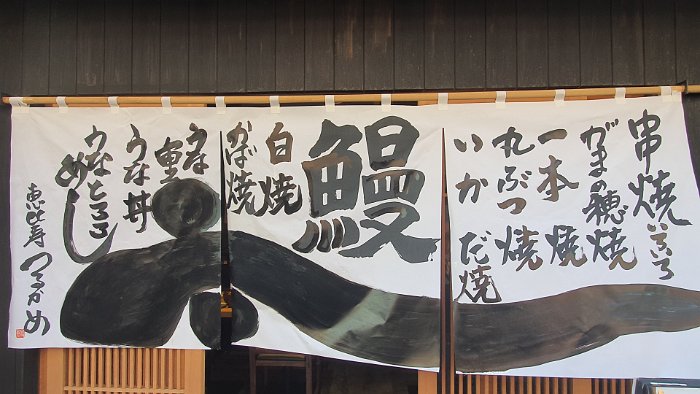 串焼いろいろ
がまの穂焼
一本焼
丸ぶつ焼
いかだ焼
鰻
白焼
かば焼
うな重
うな丼
うなとろ
めし
恵比寿 つるかめ